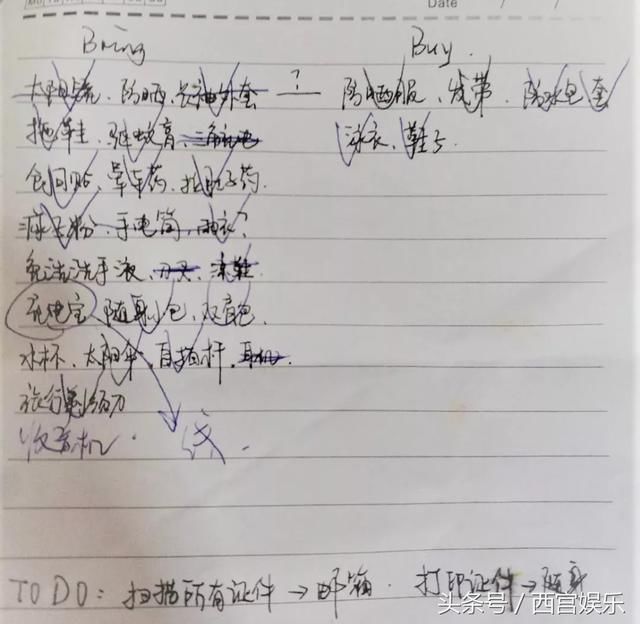 Date / /
Bring Buy.
太阳镜、防晒、长袖外套 ? — 防晒服、发带、防水包套
拖鞋、驱蚊膏、 泳衣、鞋子
创可贴、晕车药、拉肚子药
手电筒、雨衣?
免洗洗手液、刀叉、凉鞋.
充电宝 随身小包、双肩包.
水杯、太阳伞、自拍杆、耳机.
旅行剃须刀
收音机. 线
TO DO: 扫描所有证件 → 邮箱. 打印证件 → 随身
头条号 / 西宫娱乐